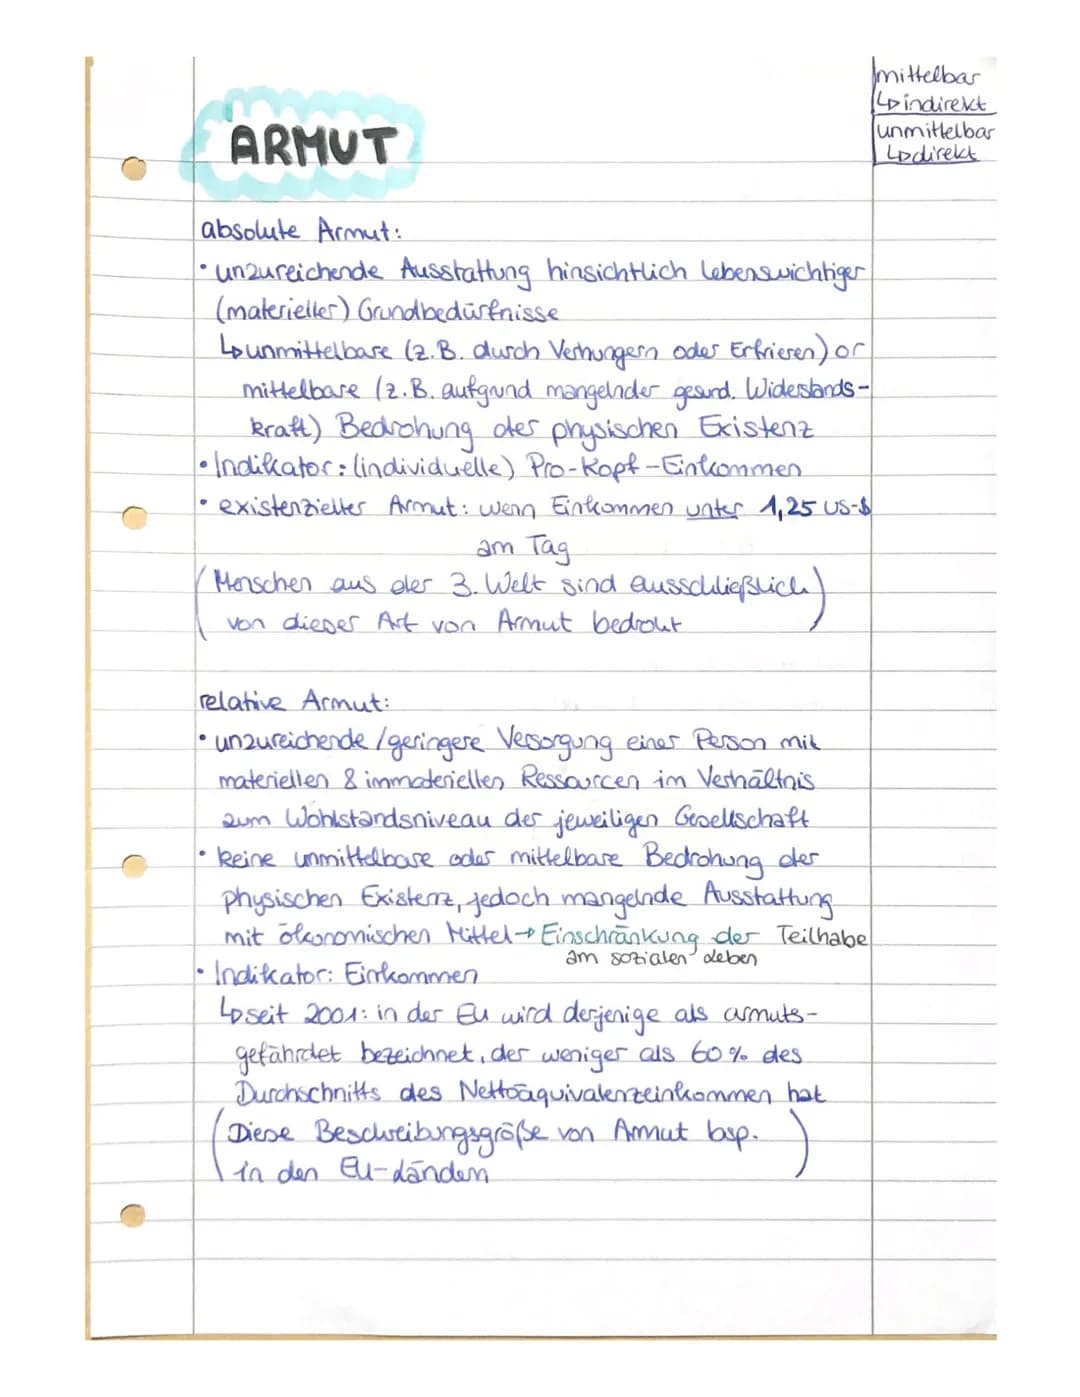 mittelbar
↳indirekt
unmittelbar
↳direkt
ARMUT
absolute Armut:
• unzureichende Ausstattung hinsichtlich lebenswichtiger
(materieller) Grundbedürfnisse
↳unmittelbare (z.B. durch Verhungern oder Erfrieren) or
mittelbare (z.B. aufgrund mangelnder gesund. Widerstands-
kraft) Bedrohung der physischen Existenz
• Indikator: (individuelle) Pro-Kopf-Einkommen
• existenzieller Armut: wenn Einkommen unter 1,25 US-$
am Tag
(Menschen aus der 3. Welt sind ausschließlich)
von dieser Art von Armut bedroht
relative Armut:
• unzureichende/geringere Versorgung einer Person mit
materiellen & immateriellen Ressourcen im Verhältnis
zum Wohlstandsniveau der jeweiligen Gesellschaft
• keine unmittelbare oder mittelbare Bedrohung der
physischen Existenz, jedoch mangelnde Ausstattung
mit ökonomischen Mittel→Einschränkung der Teilhabe
am sozialen Leben
• Indikator: Einkommen
↳seit 2001: in der EU wird derjenige als armuts-
gefährdet bezeichnet, der weniger als 60% des
Durchschnitts des Nettoäquivalenzeinkommen hat
(Diese Beschreibungsgröße von Armut bsp.
in den EU-Ländern)